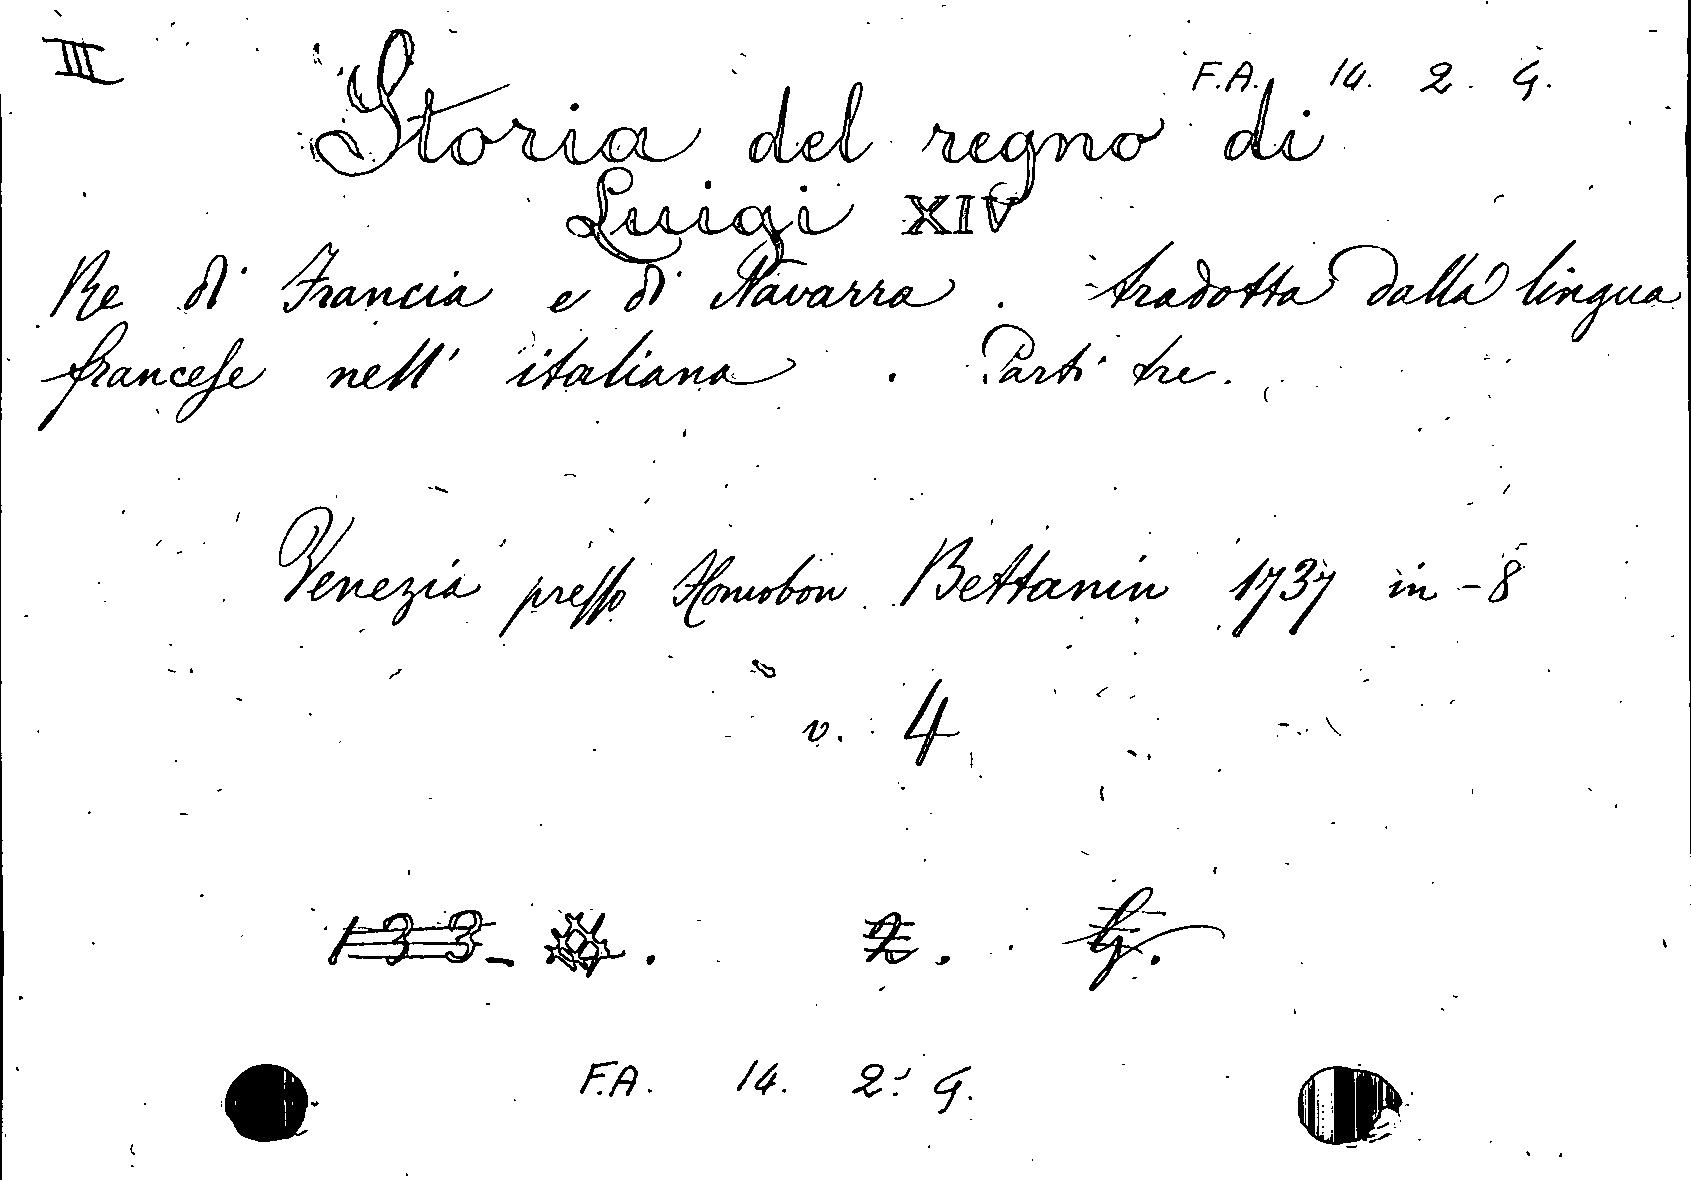 III
F.A. 14. 2. G.
Storia del regno di
Luigi XIV
Re di Francia e di Navarra. tradotta dalla lingua
francese nell' italiana. Parti tre.
Venezia presso Homobon Bettanin 1737 in-8
v. 4
133- . 2. G.
F.A. 14. 2. G.